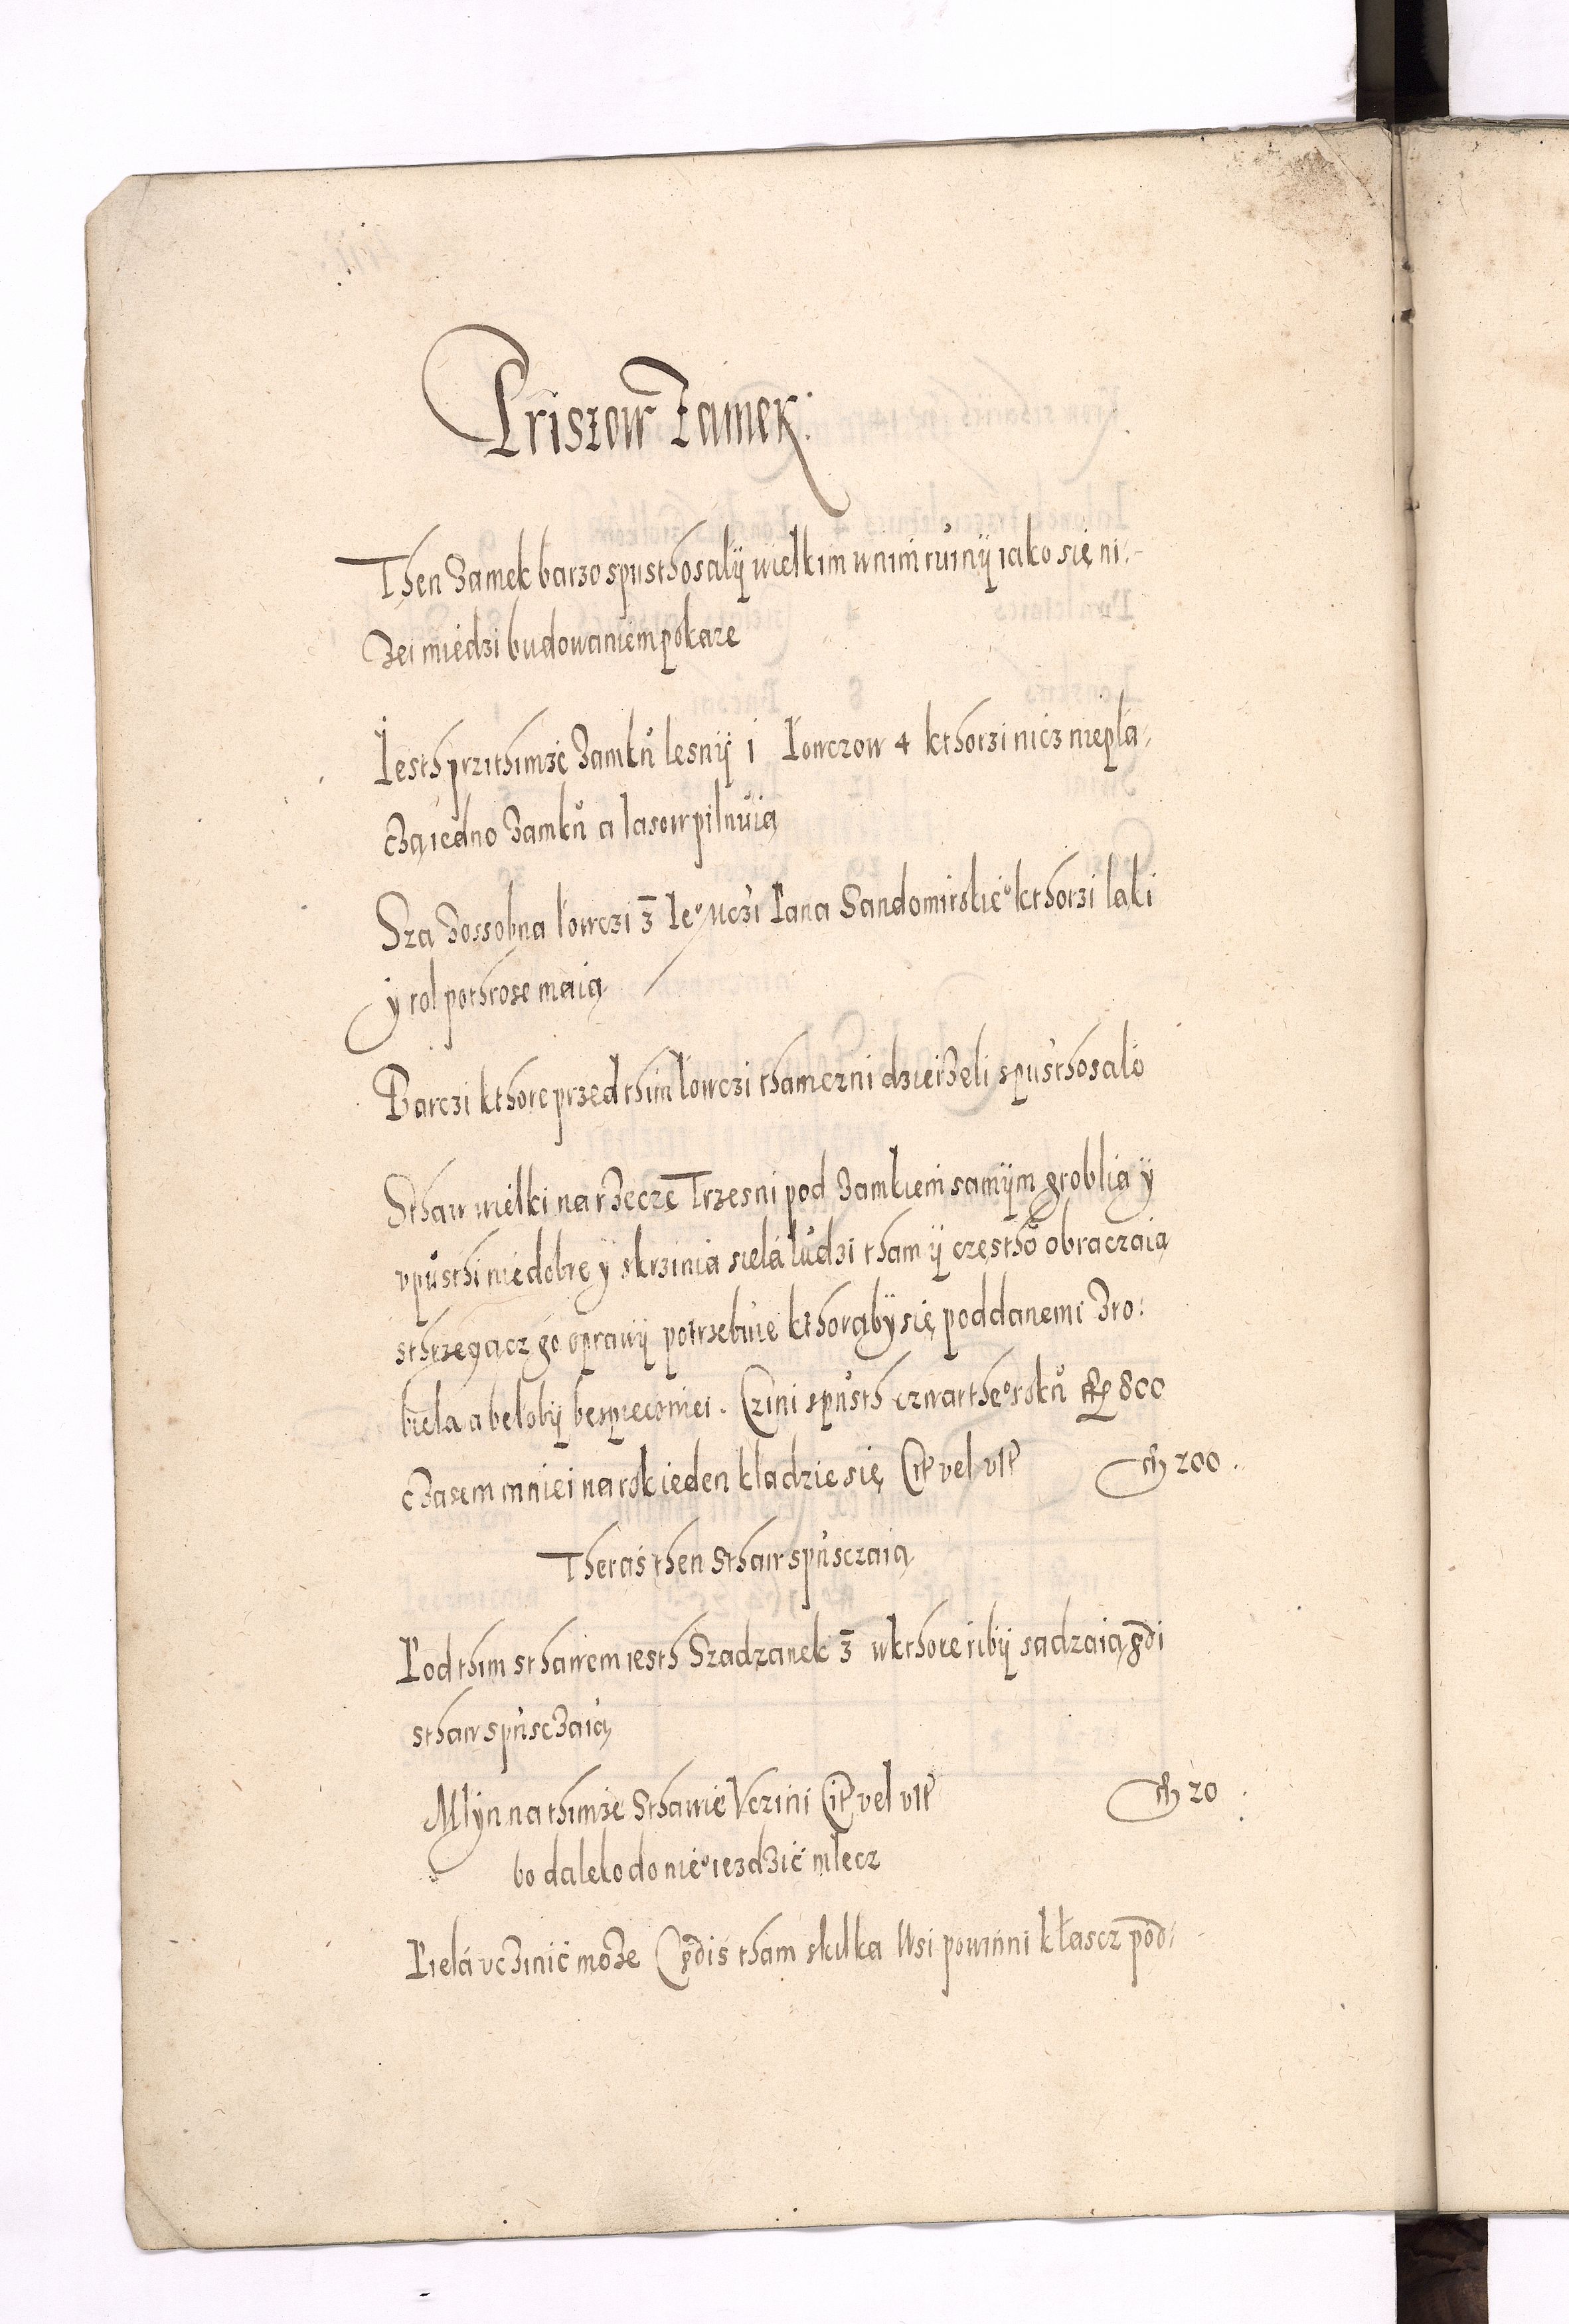 Priszow Zamek:
Then Zamek barzo spusthosalÿ wielkim w nim ruinÿ iako się ni:
zei miedzi budowaniem pokaze
Iesth prżithimże Zamku lesnÿ 1 Łowczow 4 kthorzi nicz niepla:
czą iedno Zamku a lasow pilnuią
Sza Zossobna łowczi 3 Ie° Pana Sandomirskie° kthorzi laki
ÿ rol pothrose maią
Barczi kthore przed thim łowczi thameczni dzierzeli spusthosało
Sthaw wielki na rzecze Trzesni pod Zamkiem samÿm groblia ÿ
upusthi niedobre ÿ skrzinia siela ludzi tham ÿ czestho obraczaią
sthrzegącz go oprawÿ potrzebuie kthorabÿ się poddanemi zro:
biela a beloby bespiecznieÿ. Czini spusth czwarthe° roku 800
czasem mniei na rok ieden kladzie się Cit vel ult 200
Theras then Sthaw spusczaią
Pod thim sthawem iesth Szadzawek 3 w kthore ribÿ sadzaią gdi
sthaw spusczaią
Młÿn na thimże Sthawie Uczini Cit vel ult 20
bo daleko do nie° iezdzić mlecz
Piela uczinić może Gdis tham kilka Wsi powinni kłascz pod: